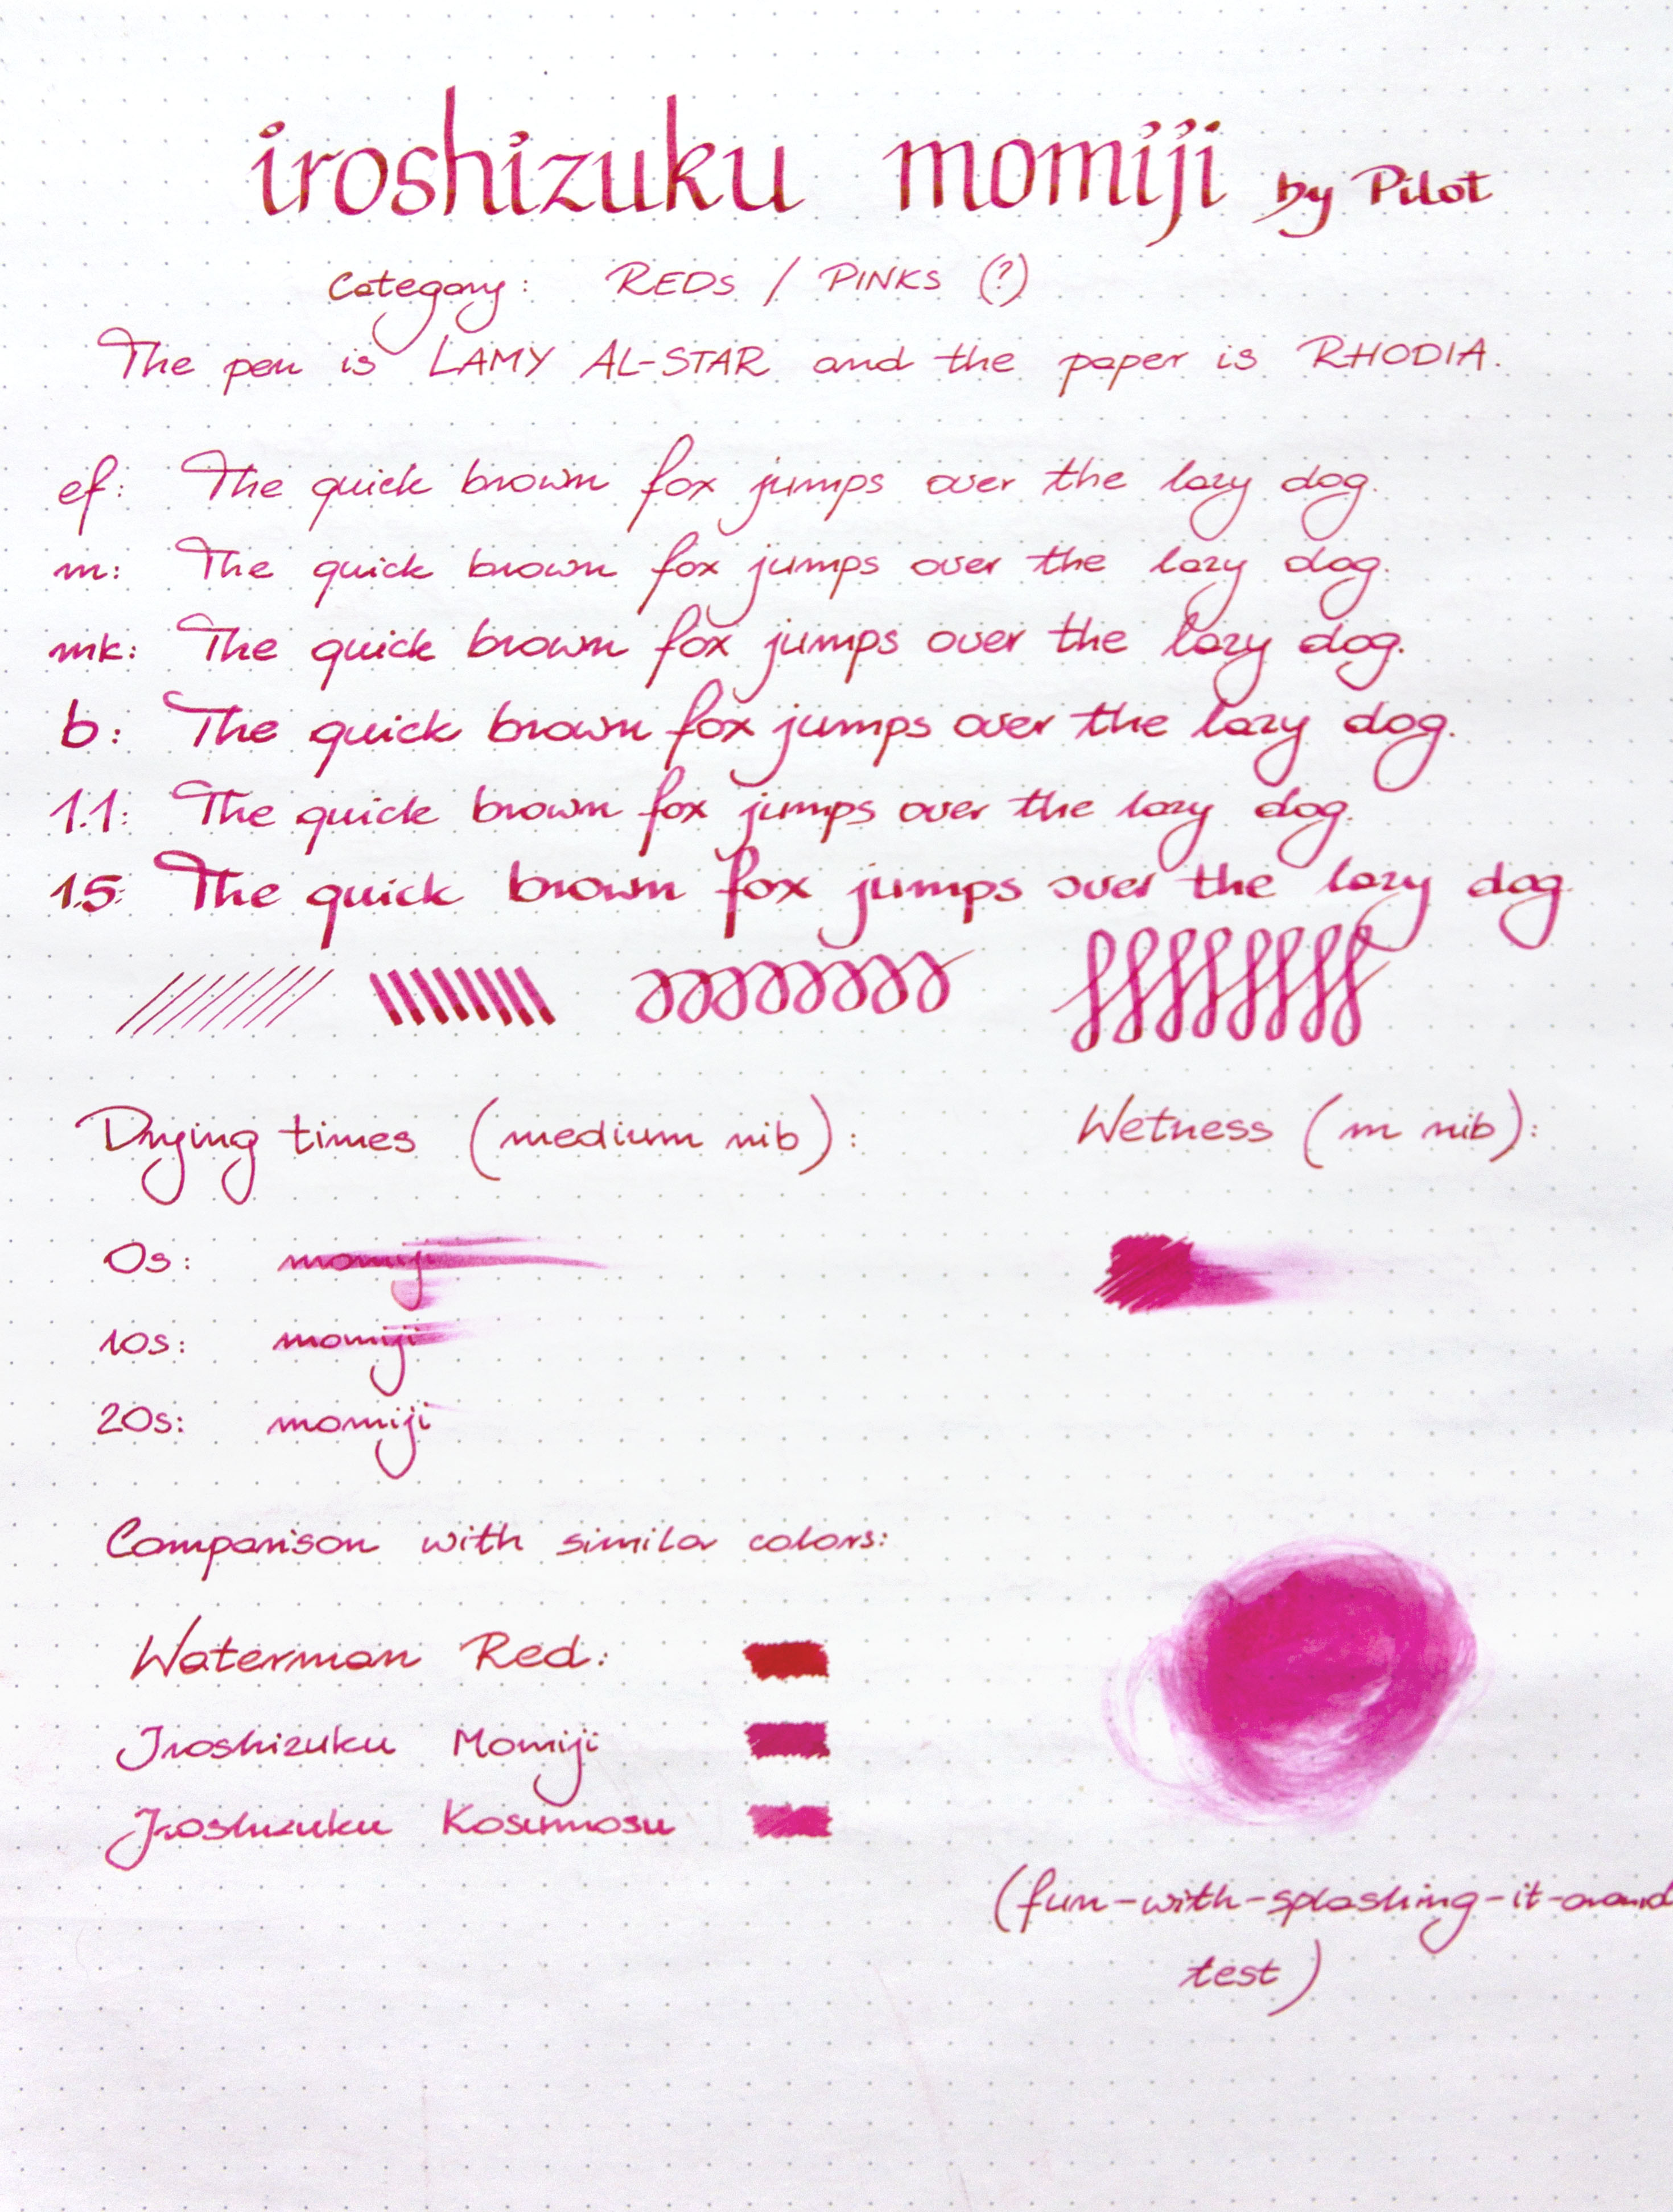 iroshizuku momiji by Pilot
Category: REDS / PINKS (?)
The pen is LAMY AL-STAR and the paper is RHODIA.
ef: The quick brown fox jumps over the lazy dog.
m: The quick brown fox jumps over the lazy dog.
mk: The quick brown fox jumps over the lazy dog.
b: The quick brown fox jumps over the lazy dog.
1.1: The quick brown fox jumps over the lazy dog.
1.5: The quick brown fox jumps over the lazy dog.
Drying times (medium nib):
Wetness (m nib):
0s: momiji
10s: momiji
20s: momiji
Comparison with similar colors:
Waterman Red:
Iroshizuku Momiji
Iroshizuku Kosumosu
(fun-with-splashing-it-around
test)